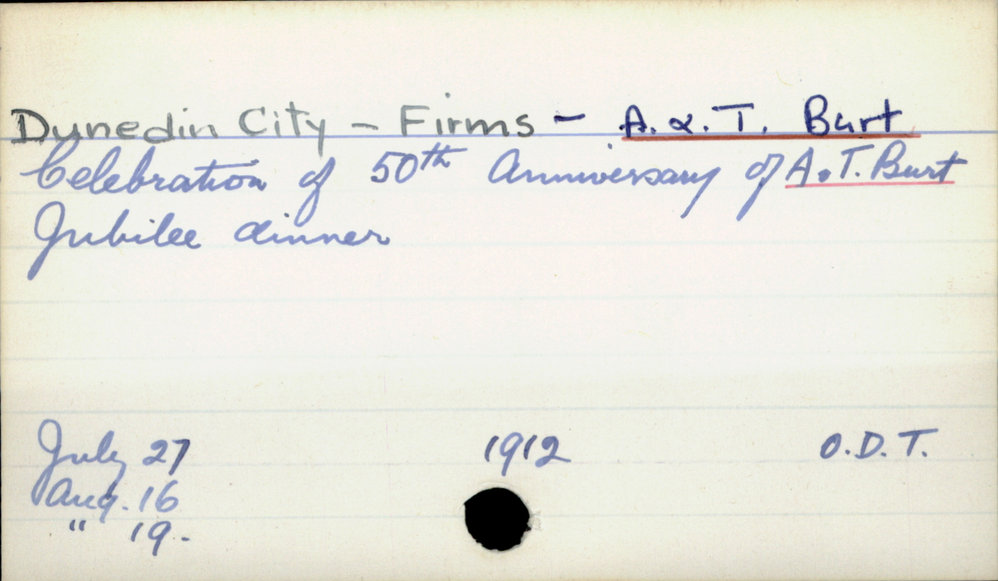 Dunedin City - Firms - A. & T. Burt
Celebration of 50th Anniversary of A. T. Burt
Jubilee dinner
July 27 1912 O.D.T.
Aug. 16
" 19.